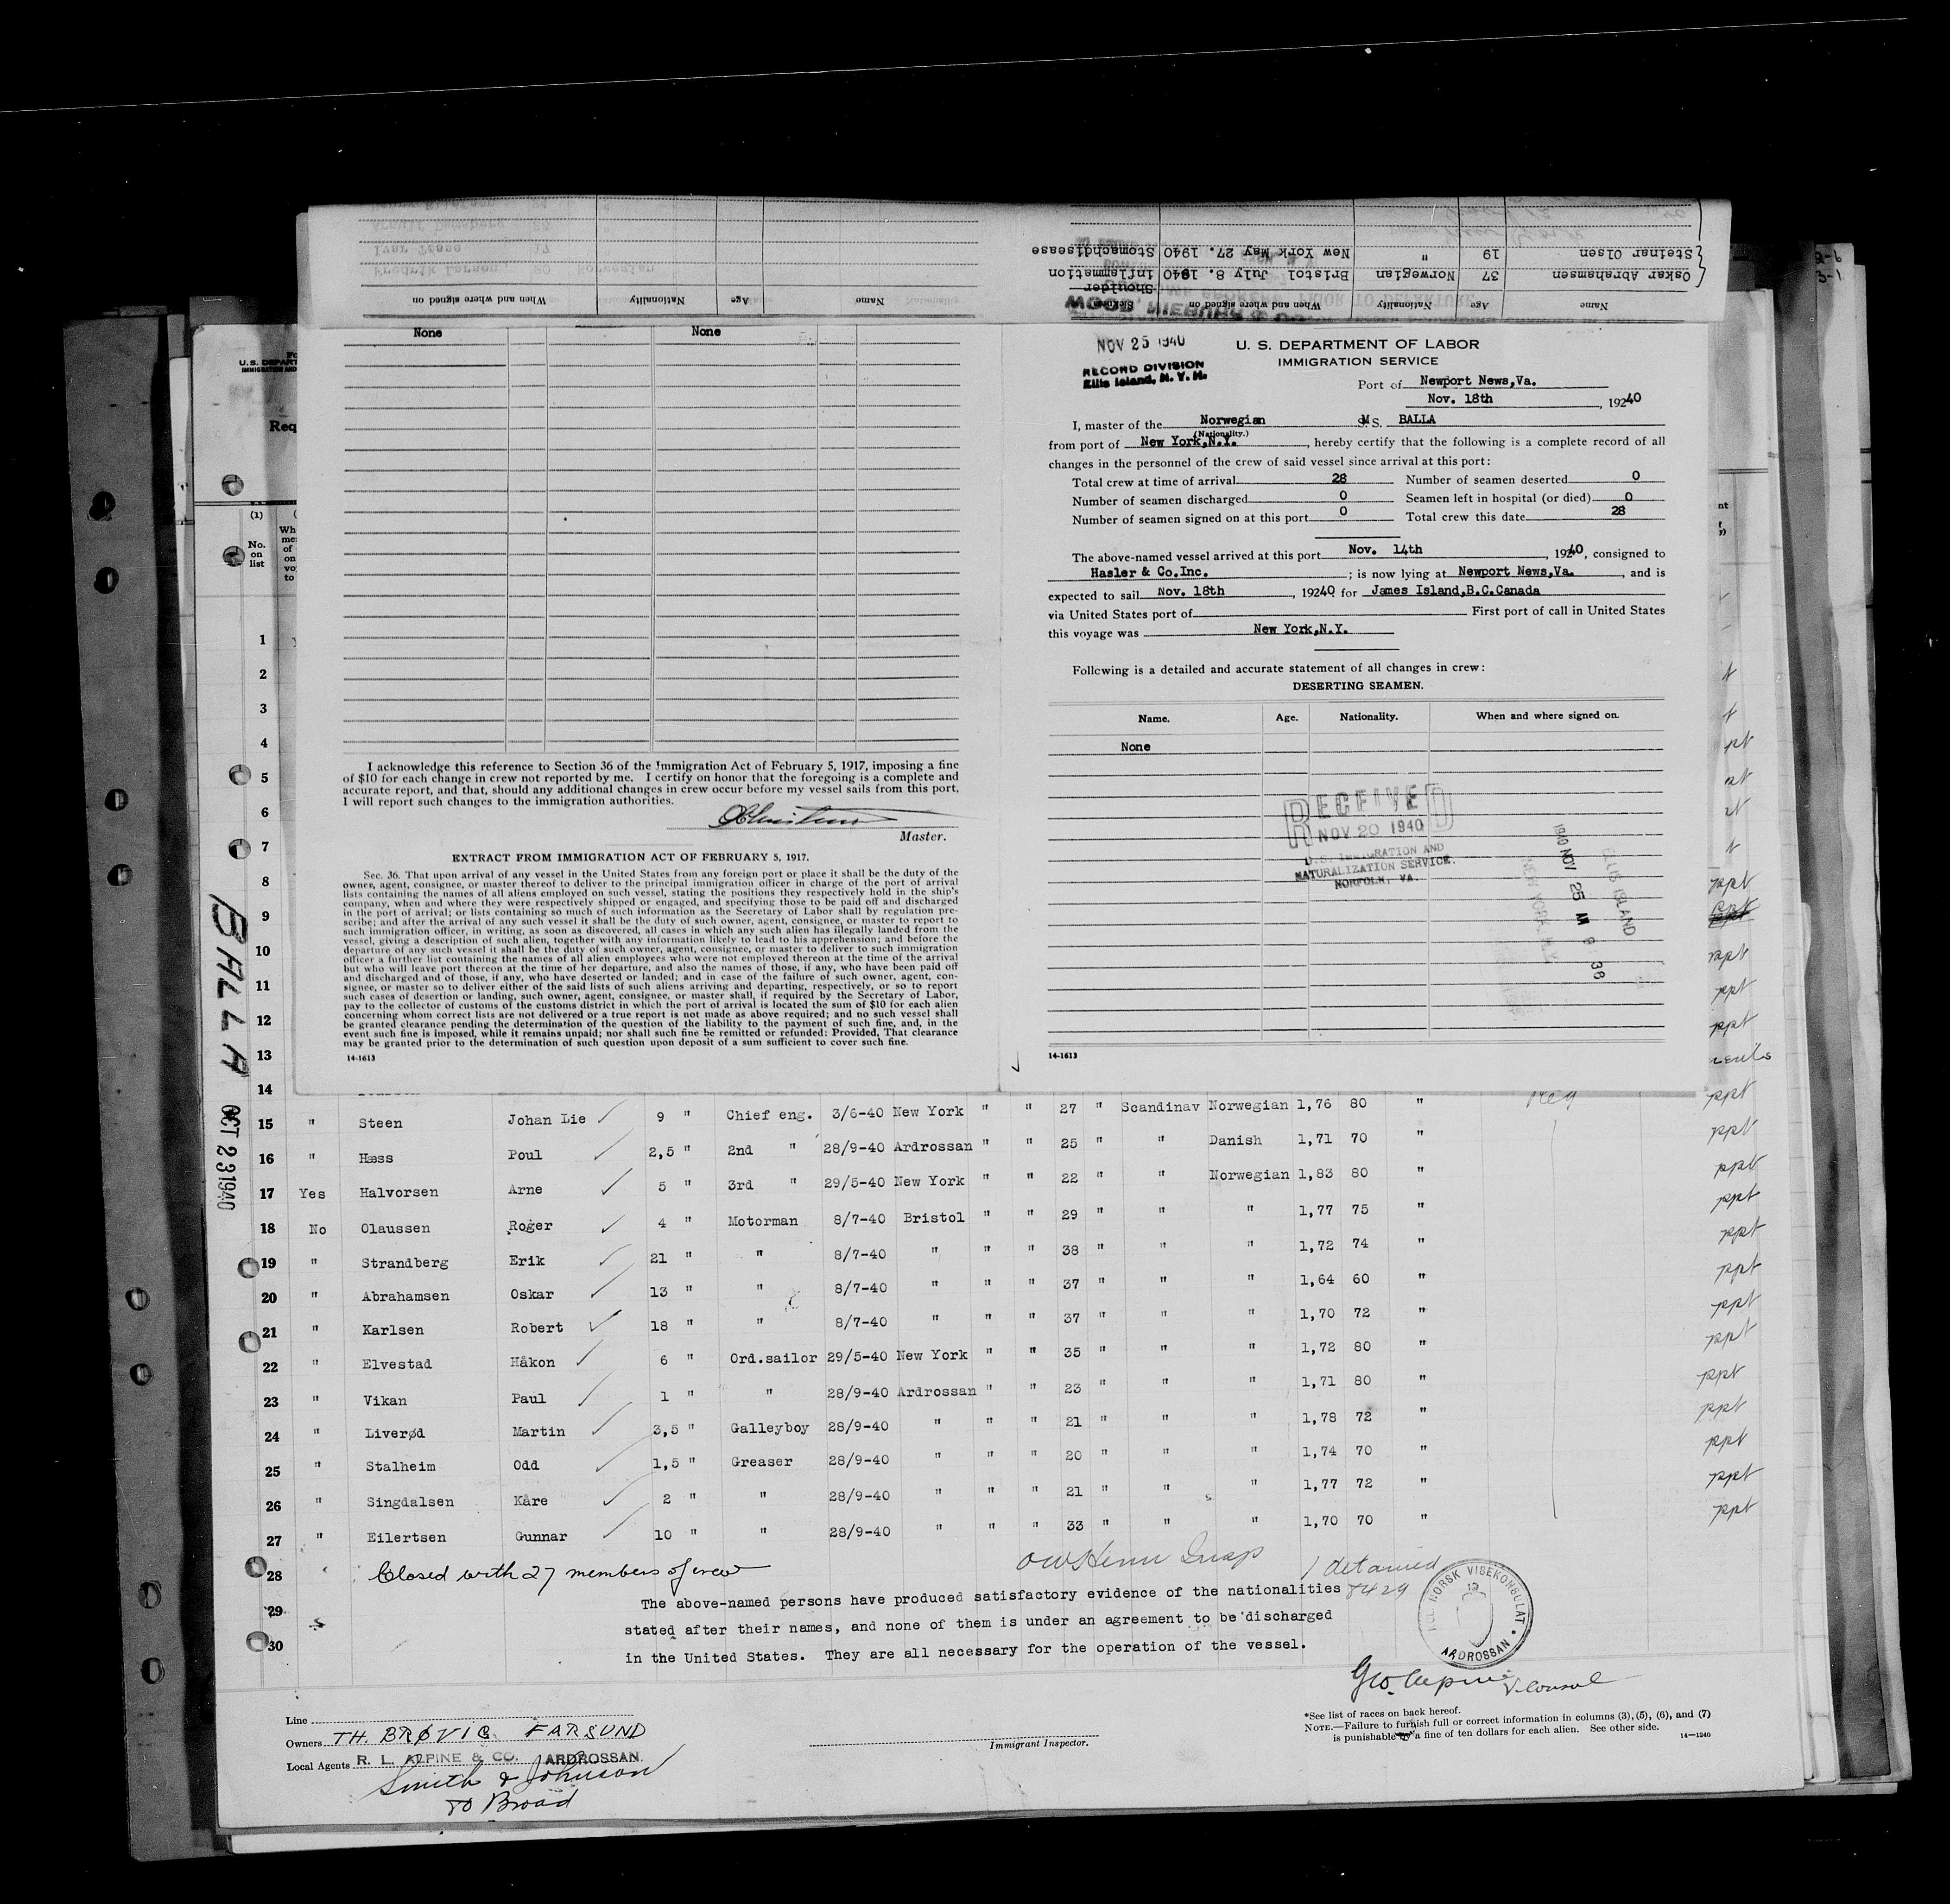 Steinar Olsen 19 " New York May 27. 1940 Stomachdisease
Oskar Abrahamsen 37 Norwegian Bristol July 8. 1940 inflammation
Shoulder
Name Age Nationality When and where signed on
Name Age Nationality When and where signed on
Fredrik Larsen 20 Norwegian
Ivar Tease 17
None None
I acknowledge this reference to Section 36 of the Immigration Act of February 5, 1917, imposing a fine
of $10 for each change in crew not reported by me. I certify on honor that the foregoing is a complete and
accurate report, and that, should any additional changes in crew occur before my vessel sails from this port,
I will report such changes to the immigration authorities.
Master.
EXTRACT FROM IMMIGRATION ACT OF FEBRUARY 5, 1917.
Sec. 36. That upon arrival of any vessel in the United States from any foreign port or place it shall be the duty of the
owner, agent, consignee, or master thereof to deliver to the principal immigration officer in charge of the port of arrival
lists containing the names of all aliens employed on such vessel, stating the positions they respectively hold in the ship's
company, when and where they were respectively shipped or engaged, and specifying those to be paid off and discharged
in the port of arrival; or lists containing so much of such information as the Secretary of Labor shall by regulation pre-
scribe; and after the arrival of any such vessel it shall be the duty of such owner, agent, consignee, or master to report to
such immigration officer, in writing, as soon as discovered, all cases in which any such alien has illegally landed from the
vessel, giving a description of such alien, together with any information likely to lead to his apprehension; and before the
departure of any such vessel it shall be the duty of such owner, agent, consignee, or master to deliver to such immigration
officer a further list containing the names of all alien employees who were not employed thereon at the time of the arrival
but who will leave port thereon at the time of her departure, and also the names of those, if any, who have been paid off
and discharged and of those, if any, who have deserted or landed; and in case of the failure of such owner, agent, con-
signee, or master so to deliver either of the said lists of such aliens arriving and departing, respectively, or so to report
such cases of desertion or landing, such owner, agent, consignee, or master shall, if required by the Secretary of Labor,
pay to the collector of customs of the customs district in which the port of arrival is located the sum of $10 for each alien
concerning whom correct lists are not delivered or a true report is not made as above required; and no such vessel shall
be granted clearance pending the determination of the question of the liability to the payment of such fine, and, in the
event such fine is imposed, while it remains unpaid; nor shall such fine be remitted or refunded: Provided, That clearance
may be granted prior to the determination of such question upon deposit of a sum sufficient to cover such fine.
14-1613
NOV 25 1940
RECORD DIVISION
Ellis Island, N. Y. H.
U. S. DEPARTMENT OF LABOR
IMMIGRATION SERVICE
Port of Newport News,Va.
Nov. 18th, 19240
I, master of the Norwegian MS. BALLA
(Nationality.)
from port of New York,N.Y., hereby certify that the following is a complete record of all
changes in the personnel of the crew of said vessel since arrival at this port:
Total crew at time of arrival 28 Number of seamen deserted 0
Number of seamen discharged 0 Seamen left in hospital (or died) 0
Number of seamen signed on at this port 0 Total crew this date 28
The above-named vessel arrived at this port Nov. 14th, 19240, consigned to
Hasler & Co.Inc. ; is now lying at Newport News,Va., and is
expected to sail Nov. 18th, 19240 for James Island,B.C.Canada
via United States port of First port of call in United States
this voyage was New York,N.Y.
Following is a detailed and accurate statement of all changes in crew:
DESERTING SEAMEN.
Name. Age. Nationality. When and where signed on.
None
RECEIVED
NOV 20 1940
U.S. IMMIGRATION AND
NATURALIZATION SERVICE.
NORFOLK, VA.
1940 NOV 25 M 8 38
ELLIS ISLAND
NEW YORK, N.Y.
14-1613
U. S. DEPART
IMMIGRATION AND
Req
(1)
No.
on
list
1
2
3
4
5
6
7
8
9
10
11
12
13
14
BALLA
OCT 23 1940
15 " Steen Johan Lie 9 " Chief eng. 3/6-40 New York " " 27 " Scandinav Norwegian 1,76 80 " ppt
16 " Hæss Poul 2,5 " 2nd " 28/9-40 Ardrossan " " 25 " " Danish 1,71 70 " ppt
17 Yes Halvorsen Arne 5 " 3rd " 29/5-40 New York " " 22 " " Norwegian 1,83 80 " ppt
18 No Olaussen Roger 4 " Motorman 8/7-40 Bristol " " 29 " " " 1,77 75 " ppt
19 " Strandberg Erik 21 " " 8/7-40 " " " 38 " " " 1,72 74 " ppt
20 " Abrahamsen Oskar 13 " " 8/7-40 " " " 37 " " " 1,64 60 " ppt
21 " Karlsen Robert 18 " " 8/7-40 " " " 37 " " " 1,70 72 " ppt
22 " Elvestad Håkon 6 " Ord.sailor 29/5-40 New York " " 35 " " " 1,72 80 " ppt
23 " Vikan Paul 1 " " 28/9-40 Ardrossan " " 23 " " " 1,71 80 " ppt
24 " Liverød Martin 3,5 " Galleyboy 28/9-40 " " " 21 " " " 1,78 72 " ppt
25 " Stalheim Odd 1,5 " Greaser 28/9-40 " " " 20 " " " 1,74 70 " ppt
26 " Singdalsen Kåre 2 " " 28/9-40 " " " 21 " " " 1,77 72 " ppt
27 " Eilertsen Gunnar 10 " " 28/9-40 " " " 33 " " " 1,70 70 " ppt
28 Closed with 27 members of crew 1 detained
The above-named persons have produced satisfactory evidence of the nationalities
29 stated after their names, and none of them is under an agreement to be discharged
30 in the United States. They are all necessary for the operation of the vessel.
KGL NORSK VISEKONSULAT
ARDROSSAN
Geo. Alpine V. Consul
Line
Owners TH. BRØVIG FARSUND
Local Agents R. L. ALPINE & CO. ARDROSSAN.
Smith & Johnson
80 Broad
Immigrant Inspector.
*See list of races on back hereof.
NOTE.—Failure to furnish full or correct information in columns (3), (5), (6), and (7)
is punishable by a fine of ten dollars for each alien. See other side.
14—1240